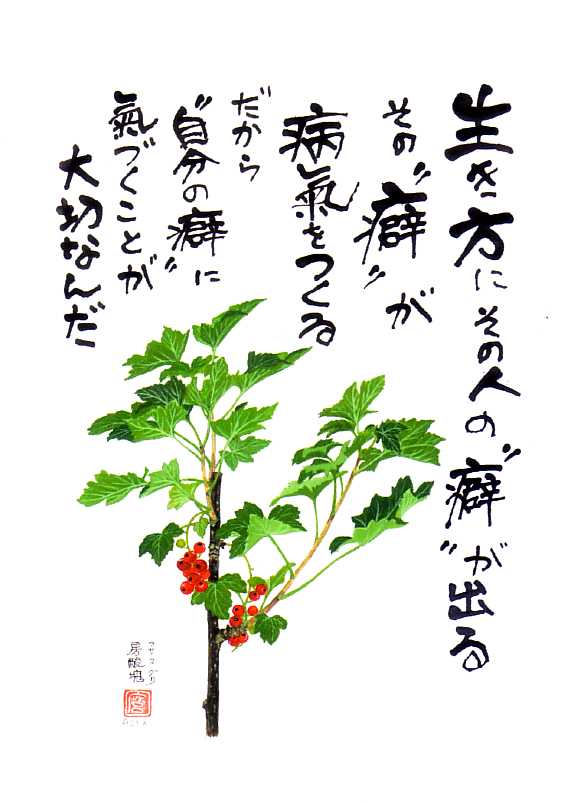 生き方にその人の〝癖〟が出る
その〝癖〟が
病氣をつくる
だから
〝自分の癖〟に
氣づくことが
大切なんだ
フサスグリ
房酸塊